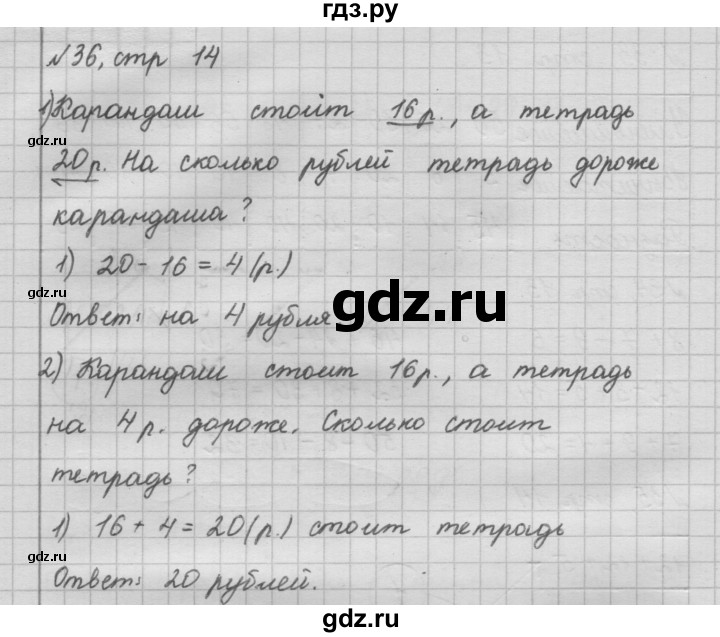 гдз.ру
№36, стр 14
1) Карандаш стоит 16 р., а тетрадь
gdz.ru
20 р. На сколько рублей тетрадь дороже
карандаша?
1) 20 - 16 = 4 (р.)
gdz.ru
Ответ: на 4 рубля
gdz.ru
2) Карандаш стоит 16 р., а тетрадь
на 4 р. дороже. Сколько стоит
тетрадь?
1) 16 + 4 = 20 (р.) стоит тетрадь
gdz.ru
Ответ: 20 рублей.
gdz.ru